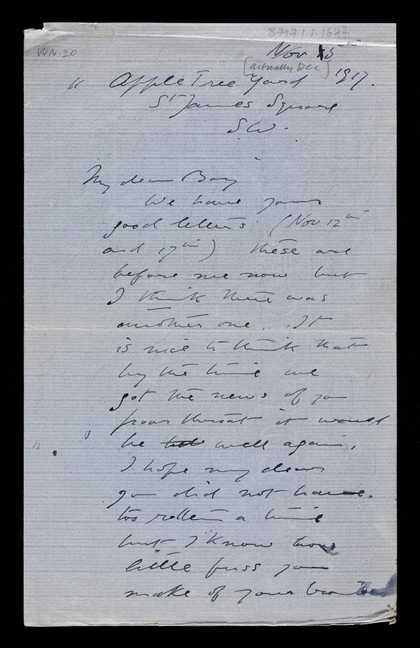 WN.20
8717.1.1.1627
Nov 15
(actually Dec) 1917.
11 Apple Tree Yard
St James Square
S.W.
My dear Boy
We have yours
good letters (Nov 12th
and 17th) these are
before me now but
I think there was
another one. It
is nice to think that
by the time we
got the news of yr
poor throat it would
be well again.
I hope my dears
you did not have
too rotten a time
but I know how
little fuss you
make of your